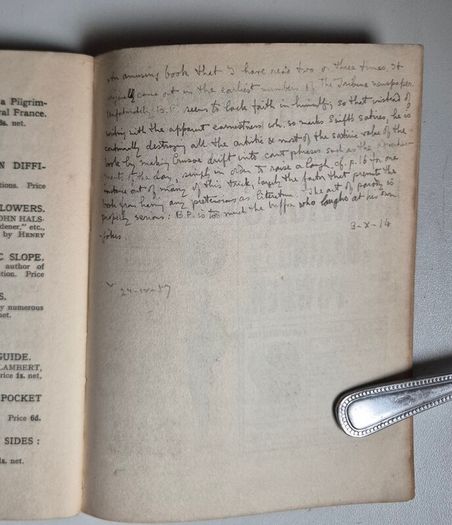 a Pilgrim-
val France.
s. net.
N DIFFI-
tions. Price
LOWERS.
OHN HALS-
dener," etc.,
by HENRY
C SLOPE.
author of
tion. Price
S.
y numerous
net.
GUIDE.
LAMBERT,
rice 1s. net.
POCKET
Price 6d.
SIDES :
s. net.
An amusing book that I have read two or three times. It
originally came out in the earliest numbers of The Tribune newspaper.
Unfortunately B.P. seems to lack faith in himself, so that instead of
writing with the apparent earnestness wh. so marks Swift's satires, he is
continually destroying all the artistic & most of the satiric value of the
book by making Crusoe drift into cant phrases such as the
of the day, simply in order to raise a laugh cf. p. 16 for one
instance out of many of this trick, largely the factor that prevent the
book from having any pretensions as literature. The art of parody is
properly serious: B.P. is too much the buffoon who laughs at his own
jokes.
3-X-14